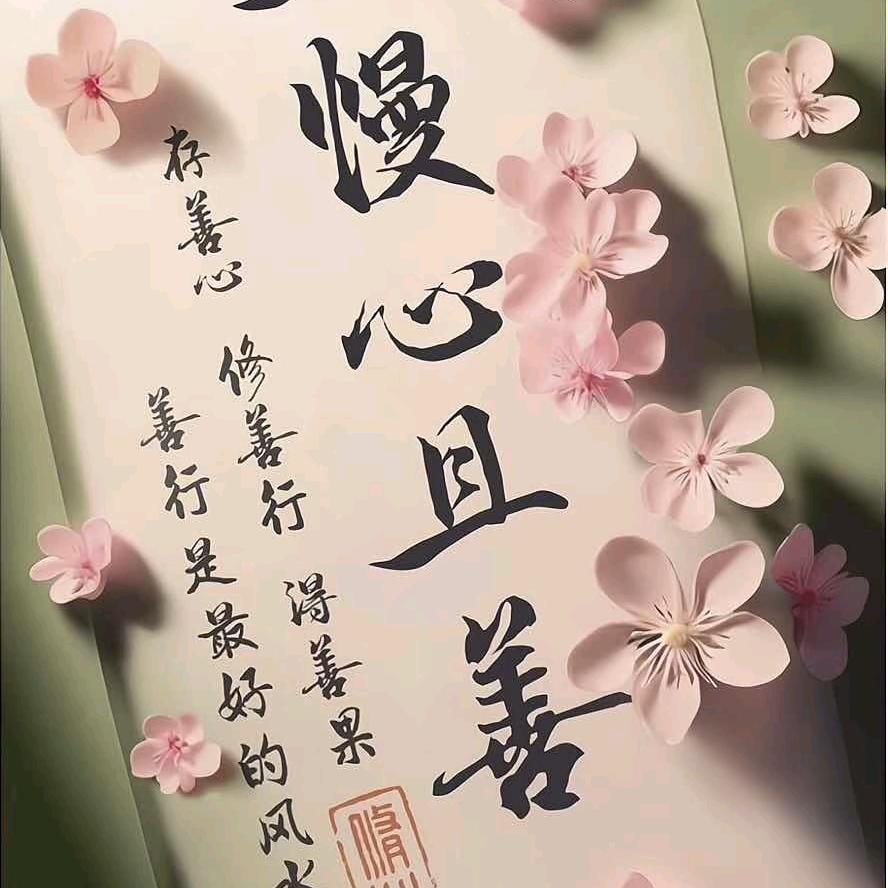 慢心且善
存善心 修善行 得善果
善行是最好的风水
脩